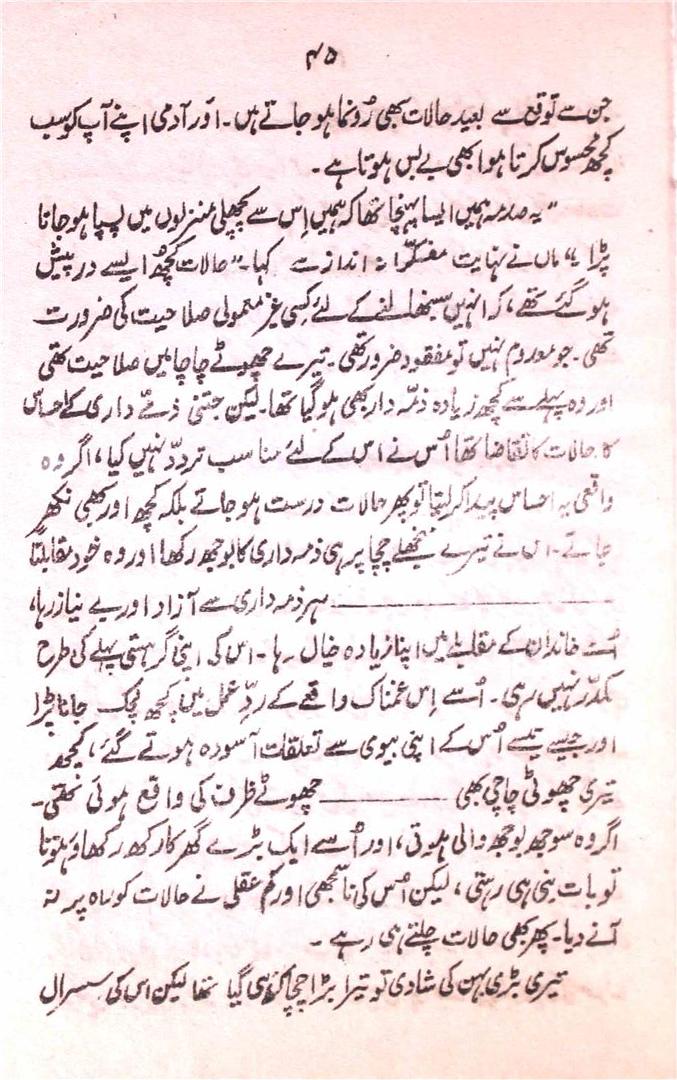 ۴۵
جن سے توقع سے بعید حالات بھی رُونما ہو جاتے ہیں۔ اور آدمی اپنے آپ کو سب
کچھ محسوس کرتا ہوا بھی بے بس ہوتا ہے۔
”یہ صدمہ ہمیں ایسا پہنچا تھا کہ ہمیں اِس سے پچھلی منزلوں میں پسپا ہو جانا
پڑا“ ماں نے نہایت مفکّرانہ انداز سے کہا۔ ”حالات کچھ ایسے درپیش
ہو گئے تھے، کہ انہیں سنبھالنے کے لئے کسی غیر معمولی صلاحیت کی ضرورت
تھی۔ جو معدوم نہیں تو مفقود ضرور تھی۔ تیرے چھوٹے چاچا میں صلاحیت تھی
اور وہ پہلے سے کچھ زیادہ ذمّہ دار بھی ہو گیا تھا۔ لیکن جتنی ذمّے داری کے احساس
کا حالات کا تقاضا تھا اُس نے اس کے لئے مناسب تردد نہیں کیا، اگر وہ
واقعی یہ احساس پیدا کر لیتا تو پھر حالات درست ہو جاتے بلکہ کچھ اور بھی نکھر
جاتے۔ اس نے تیرے منجھلے چچا پر ہی ذمہ داری کا بوجھ رکھا اور وہ خود مقابلتاً
ــــــــــــــــ ہر ذمہ داری سے آزاد اور بے نیاز رہا،
اُسے خاندان کے مقابلے میں اپنا زیادہ خیال رہا۔ اس کی اپنی گرہستی پہلے کی طرح
مکدّر نہیں رہی۔ اُسے اِس غمناک واقعے کے ردِّ عمل میں کچھ لچک جانا پڑا
اور جیسے جیسے اُس کے اپنی بیوی سے تعلقات آسودہ ہوتے گئے، کچھ
تیری چھوٹی چاچی بھی ــــــــ چھوٹے ظرف کی واقع ہوئی تھی۔
اگر وہ سوجھ بوجھ والی ہوتی، اور اُسے ایک بڑے گھر کا رکھ رکھاؤ ہوتا
تو بات بنی ہی رہتی، لیکن اُس کی ناسمجھی اور کم عقلی نے حالات کو راہ پر نہ
آنے دیا۔ پھر بھی حالات چلتے ہی رہے۔
تیری بڑی بہن کی شادی تو تیرا بڑا چچا کر ہی گیا تھا لیکن اس کی سسرال